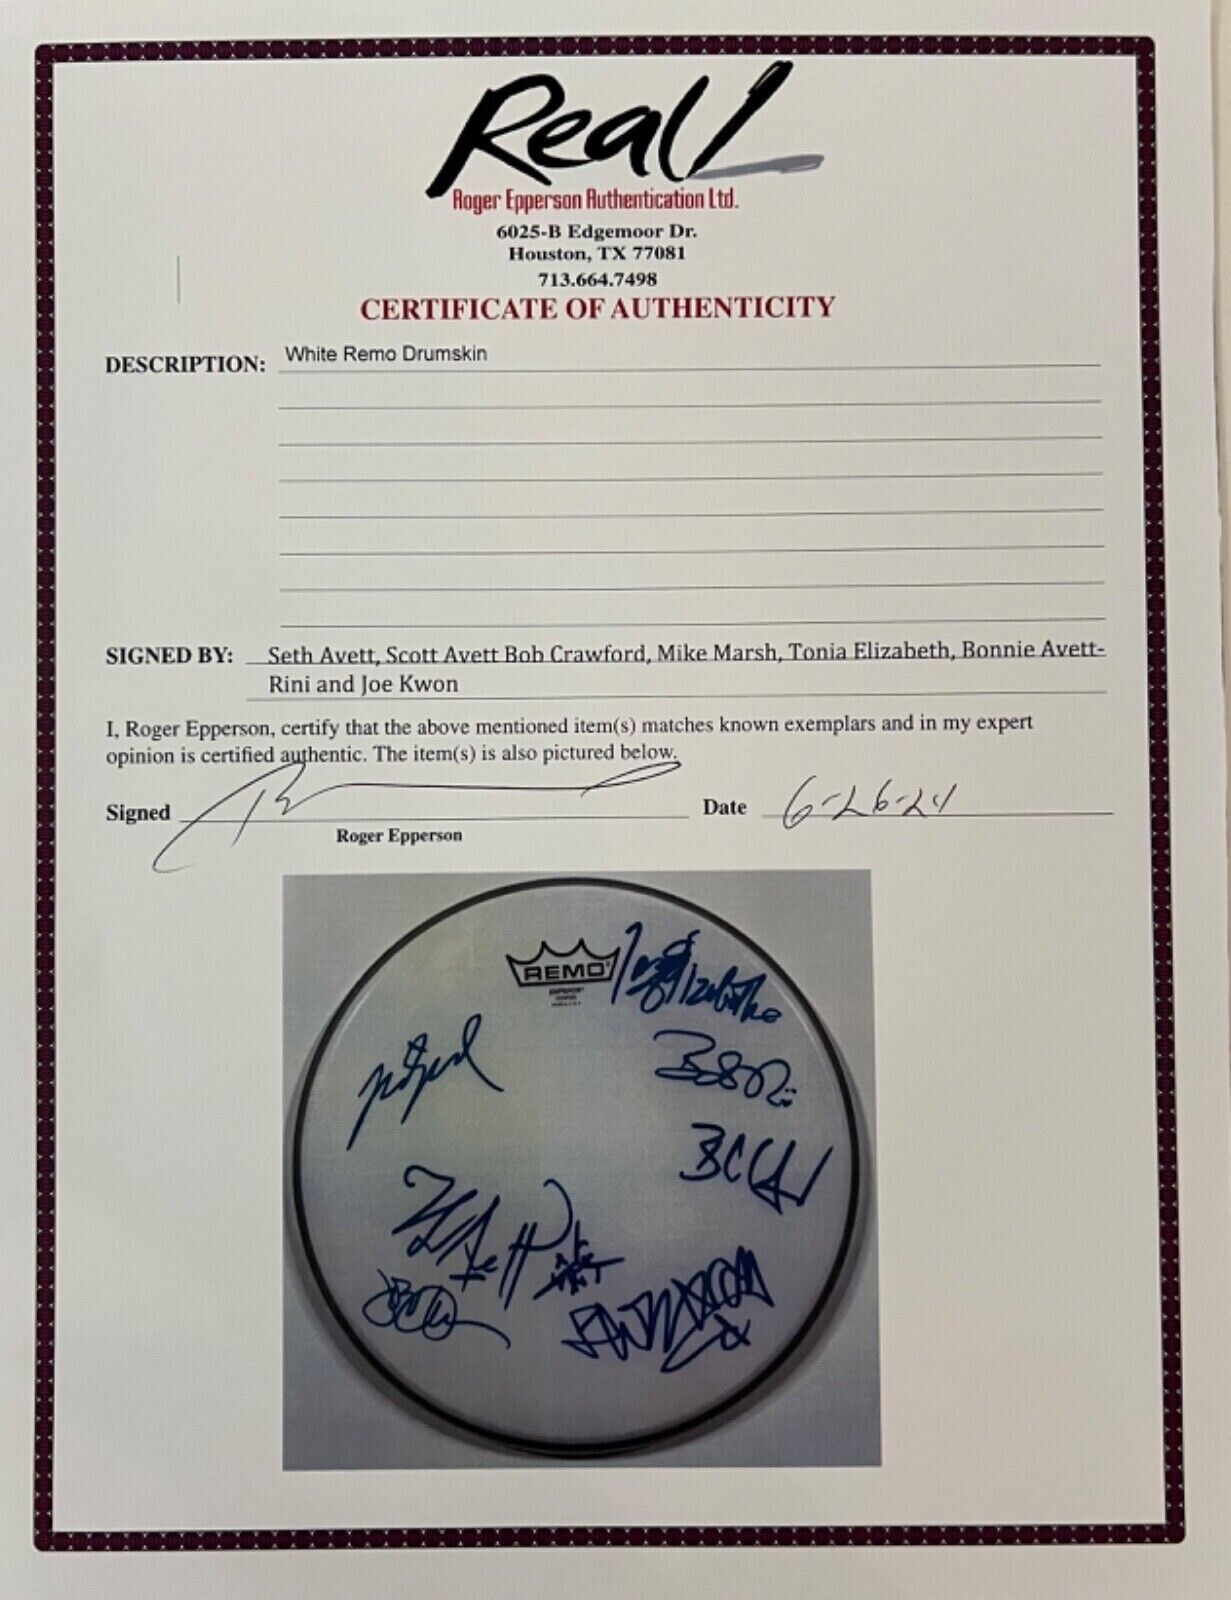 Real
Roger Epperson Authentication Ltd.
6025-B Edgemoor Dr.
Houston, TX 77081
713.664.7498
CERTIFICATE OF AUTHENTICITY
DESCRIPTION: White Remo Drumskin
SIGNED BY: Seth Avett, Scott Avett Bob Crawford, Mike Marsh, Tonia Elizabeth, Bonnie Avett-
Rini and Joe Kwon
I, Roger Epperson, certify that the above mentioned item(s) matches known exemplars and in my expert
opinion is certified authentic. The item(s) is also pictured below.
Signed Date 6-26-24
Roger Epperson
REMO
EMPEROR